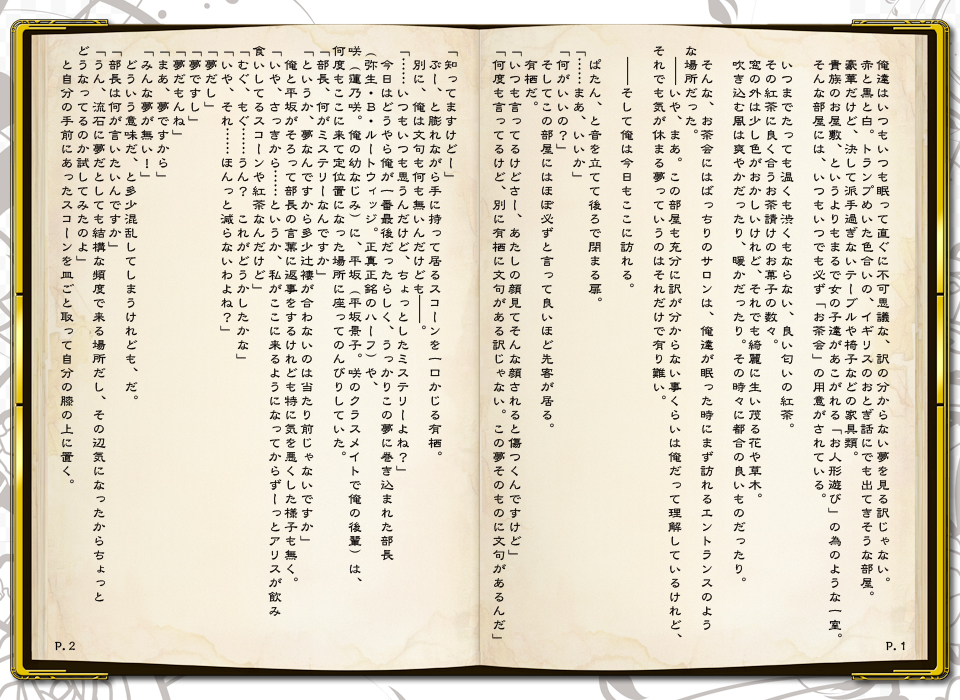 俺達はいつもいつも眠って直ぐに不可思議な、訳の分からない夢を見る訳じゃない。
赤と黒と白。トランプめいた色合いの、イギリスのおとぎ話にでも出てきそうな部屋。
豪華だけど、決して派手過ぎないテーブルや椅子などの家具類。
貴族のお屋敷、というよりもまるで女の子達があこがれる「お人形遊び」の為のような一室。
そんな部屋には、いつもいつでも必ず「お茶会」の用意がされている。
いつまでたっても温くも渋くもならない、良い匂いの紅茶。
その紅茶に良く合うお茶請けのお菓子の数々。
窓の外は少し色がおかしいけれど、それでも綺麗に生い茂る花や草木。
吹き込む風は爽やかだったり、暖かだったり。その時々に都合の良いものだったり。
そんな、お茶会にはばっちりのサロンは、俺達が眠った時にまず訪れるエントランスのよう
な場所だった。
――いや、まあ。この部屋も充分に訳が分からない事くらいは俺だって理解しているけれど、
それでも気が休まる夢っていうのはそれだけで有り難い。
――そして俺は今日もここに訪れる。
ぱたん、と音を立てて後ろで閉まる扉。
「……まあ、いいか」
「何がいいの？」
そしてこの部屋にはほぼ必ずと言って良いほど先客が居る。
有栖だ。
「いつも言ってるけどさー、あたしの顔見てそんな顔されると傷つくんですけど」
「何度も言ってるけど、別に有栖に文句がある訳じゃない。この夢そのものに文句があるんだ」
P.1
「知ってますけどー」
ぶー、と膨れながら手に持って居るスコーンを一口かじる有栖。
別に、俺は文句も何も無いんだけども――。
「……いつもいつも思うんだけど、ちょっとしたミステリーよね？」
今日はどうやら俺が一番最後だったらしく、うっかりこの夢に巻き込まれた部長
（弥生・B・ルートウィッジ。正真正銘のハーフ）や、
咲（蓮乃咲。俺の幼なじみ）に、平坂（平坂景子。咲のクラスメイトで俺の後輩）は、
何度もここに来て定位置になった場所に座ってのんびりしていた。
「部長、何がミステリーなんですか」
「というか、夢なんですから多少辻褄が合わないのは当たり前じゃないですか」
俺と平坂がそろって部長の言葉に返事をするけれども特に気を悪くした様子も無く。
「いや、さっきから……というか、私がここに来るようになってからずーっとアリスが飲み
食いしてるスコーンや紅茶なんだけど」
「むぐ、もぐ……うん？　これがどうかしたかな」
「いや、それ……ほんっと減らないわよね？」
「夢だし」
「夢ですし」
「夢だもんね」
「まあ、夢ですから」
「みんな夢が無い！」
どういう意味だ、と多少混乱してしまうけれども、だ。
「部長は何が言いたいんですか」
「うん、流石に夢だとしても結構な頻度で来る場所だし、その辺気になったからちょっと
どうなってるのか試してみたのよ」
と自分の手前にあったスコーンを皿ごと取って自分の膝の上に置く。
P.2